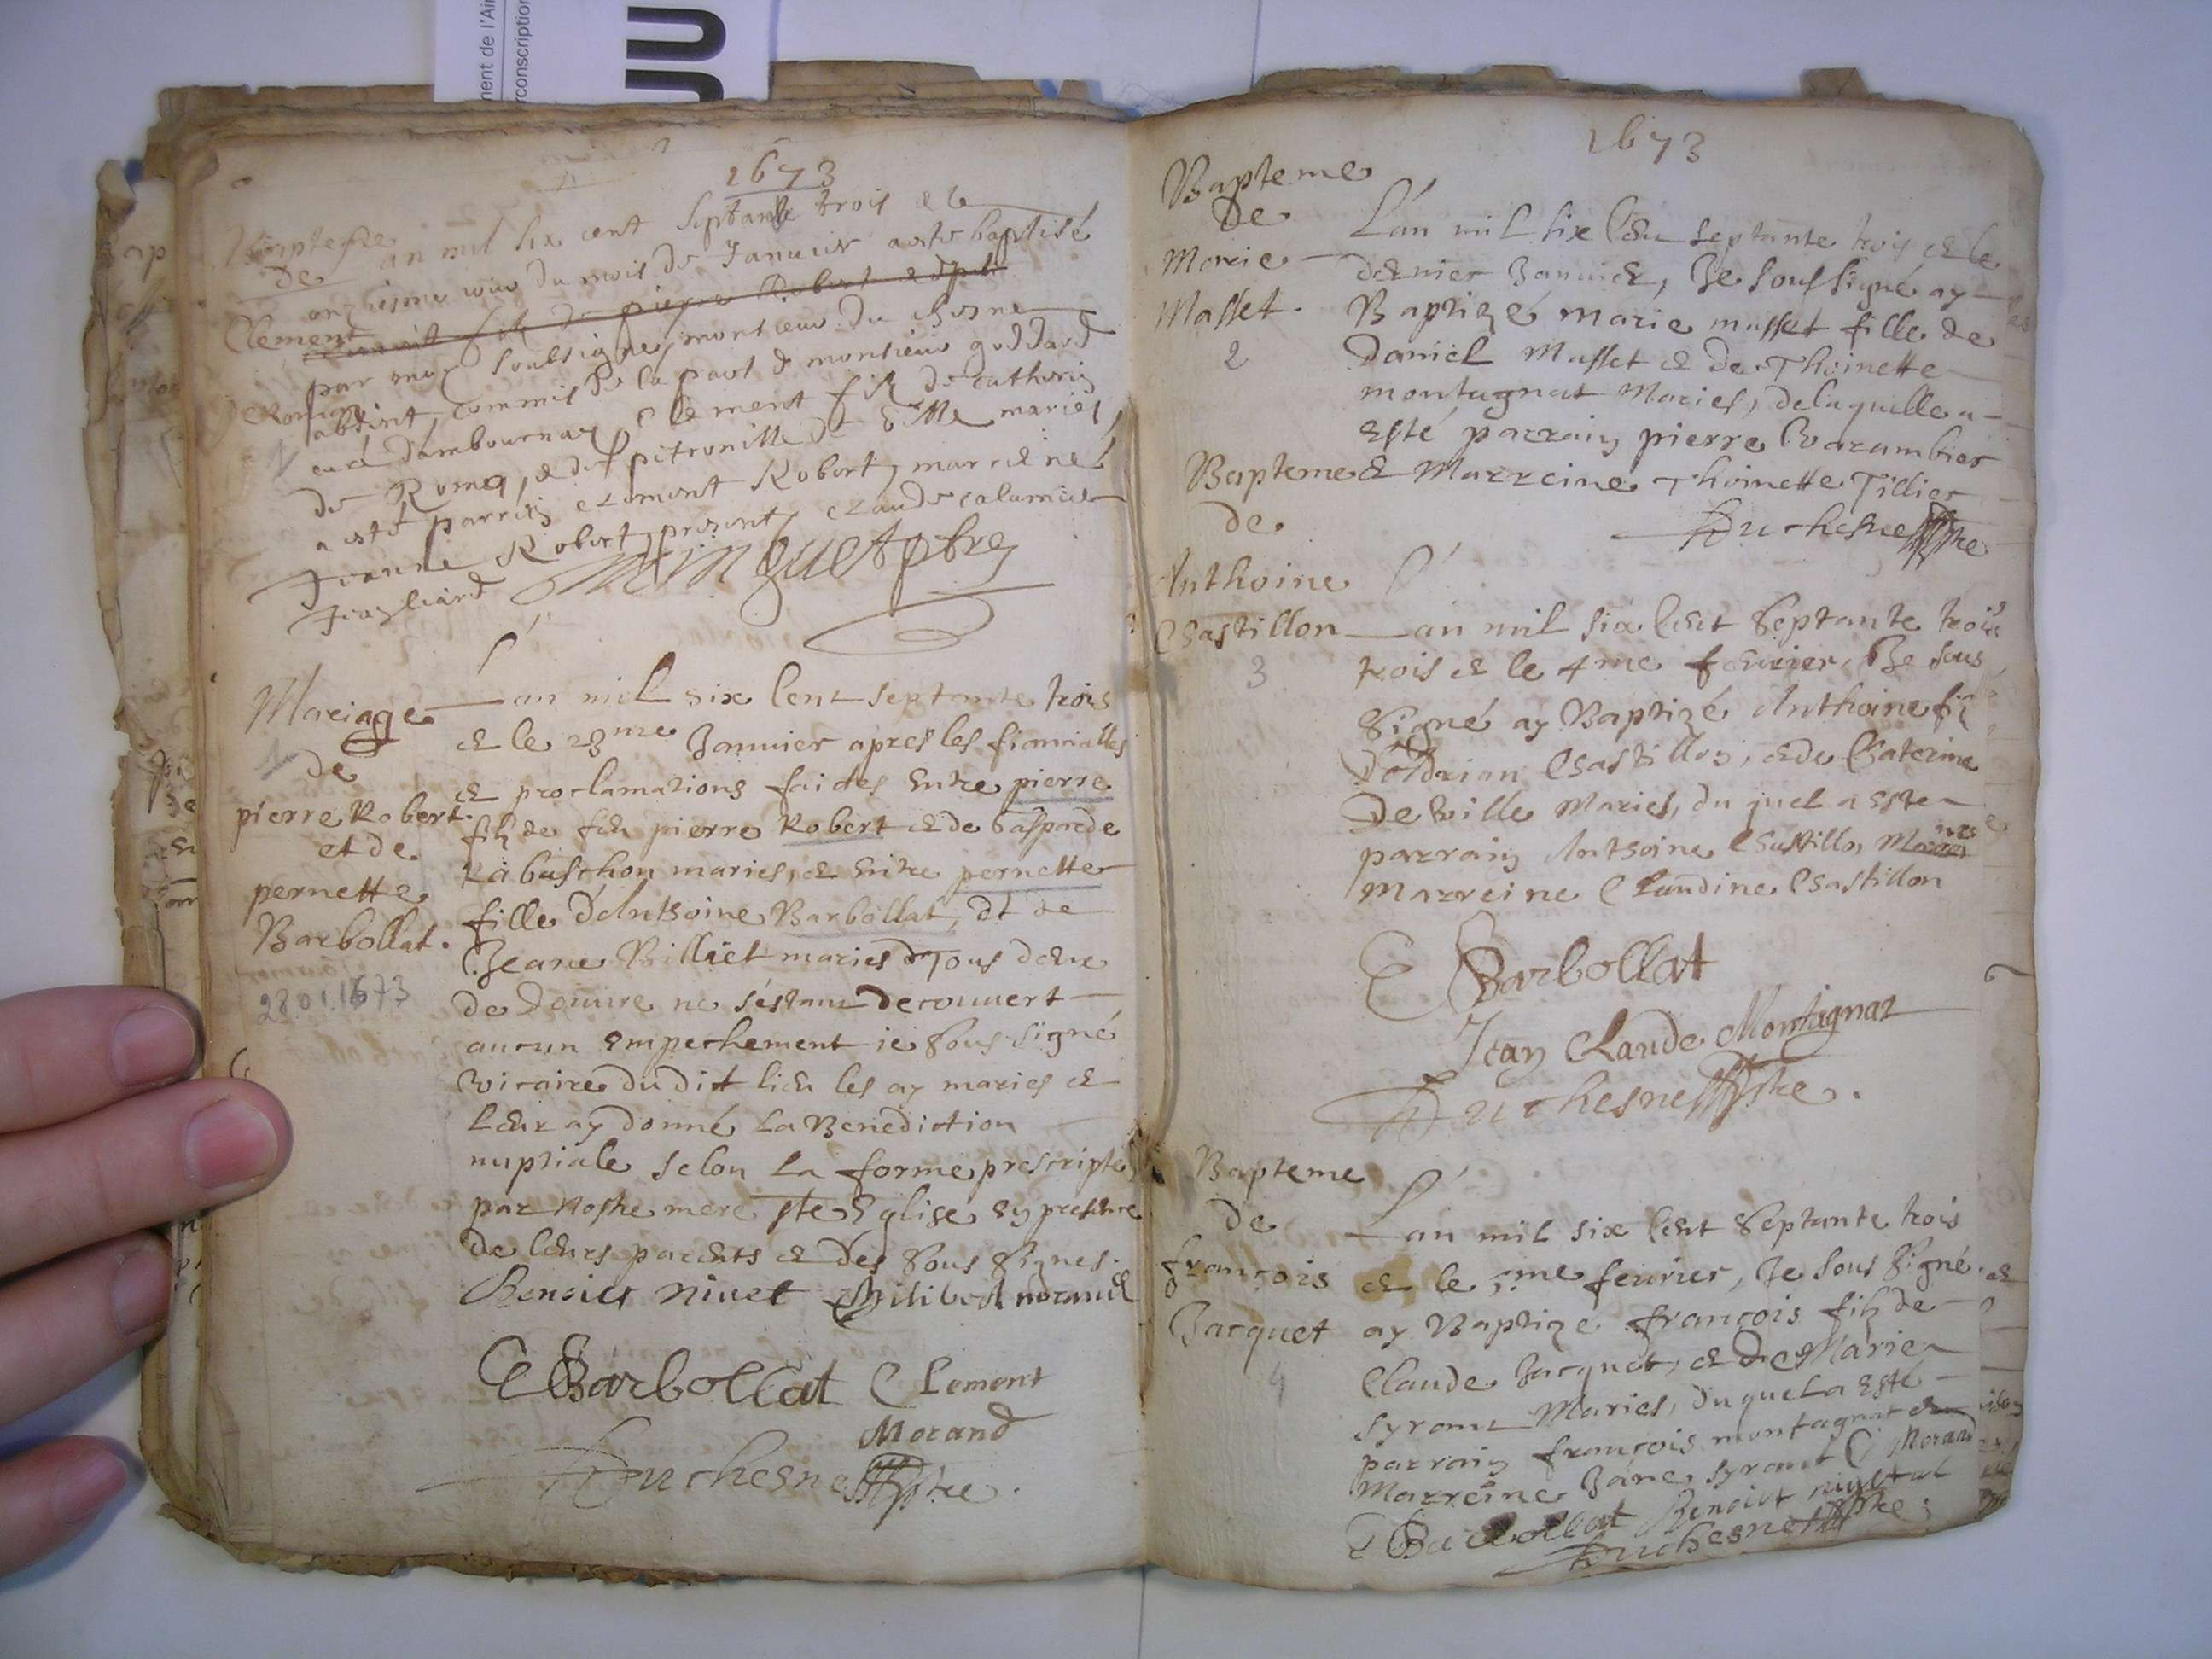 ment de l'Ain
rconscription
1673
Baptesme
de
Clement
De Romaz
1
an mil six cent septante trois et le
onziesme jour du mois de Januier a esté baptisé
par moy soubsigné, montieur du chesne
absent, commis de la part de monsieur goddard
curé dambournay, Clement fils de catherin
de Roma, et de petronille de ville mariés
a esté parrin clement Robert, marreine
Jeanne Robert, present claude calamier
Minguet ptre
Mariage
1
de
pierre Robert.
et de
pernette
Barbollat.
28.01.1673
L'an mil six Cent septante trois
et le 28me Januier apres les fiancialles
et proclamations faides entre pierre
filz de feu pierre Robert et de Gasparde
Rabuschon maries, et entre pernette
fille d'Antsoine Barbollat, et de
Jeane Billiet maries Tous deux
de Douure ne s'estant decouuert
aucun empechement ie sous signé
vicaire dudit lieu les ay mariés et
Leur ay donné La Benediction
nuptiale selon La forme prescripte
par nostre mere ste Eglise en presence
de leurs parents et des sous signes.
Benoict niuet philibert morandt
C Barbollat Clement
Morand
Duchesne ptre.
1673
Bapteme
De
Marie
Masset.
2
L'an mil six Cent septante trois et le
dernier Januier, Je soussigné ay
Baptizé marie masset fille de
Daniel Masset et de Thoinette
montagnat Maries, de laquelle a
esté parrain pierre Varambier
et Marreine Thoinette Tillier
Duchesne ptre
Bapteme
de
Anthoine
Chastillon
3
L'an mil six Cent septante trois
trois et le 4me feurier, Je sous
signé ay Baptizé Anthoine fi
d'Adrian Chastillon, et de Chaterine
De ville Maries, du quel a este
parrain Antsoine Chastillon
Marreine Claudine Chastillon
C Barbollat
Jean Claude Montagnat
Duchesne ptre.
Bapteme
de
françois
Jacquet
4
L'an mil six Cent septante trois
et le 5me feurier, Je sous signé
ay Baptizé françois filz de
Claude Jacquet, et de Marie
syrant Maries, du quel a esté
parrain françois montagnat et
Marreine Jane syrant C Morand
C Barbollat Benoict niuet
Duchesne ptre